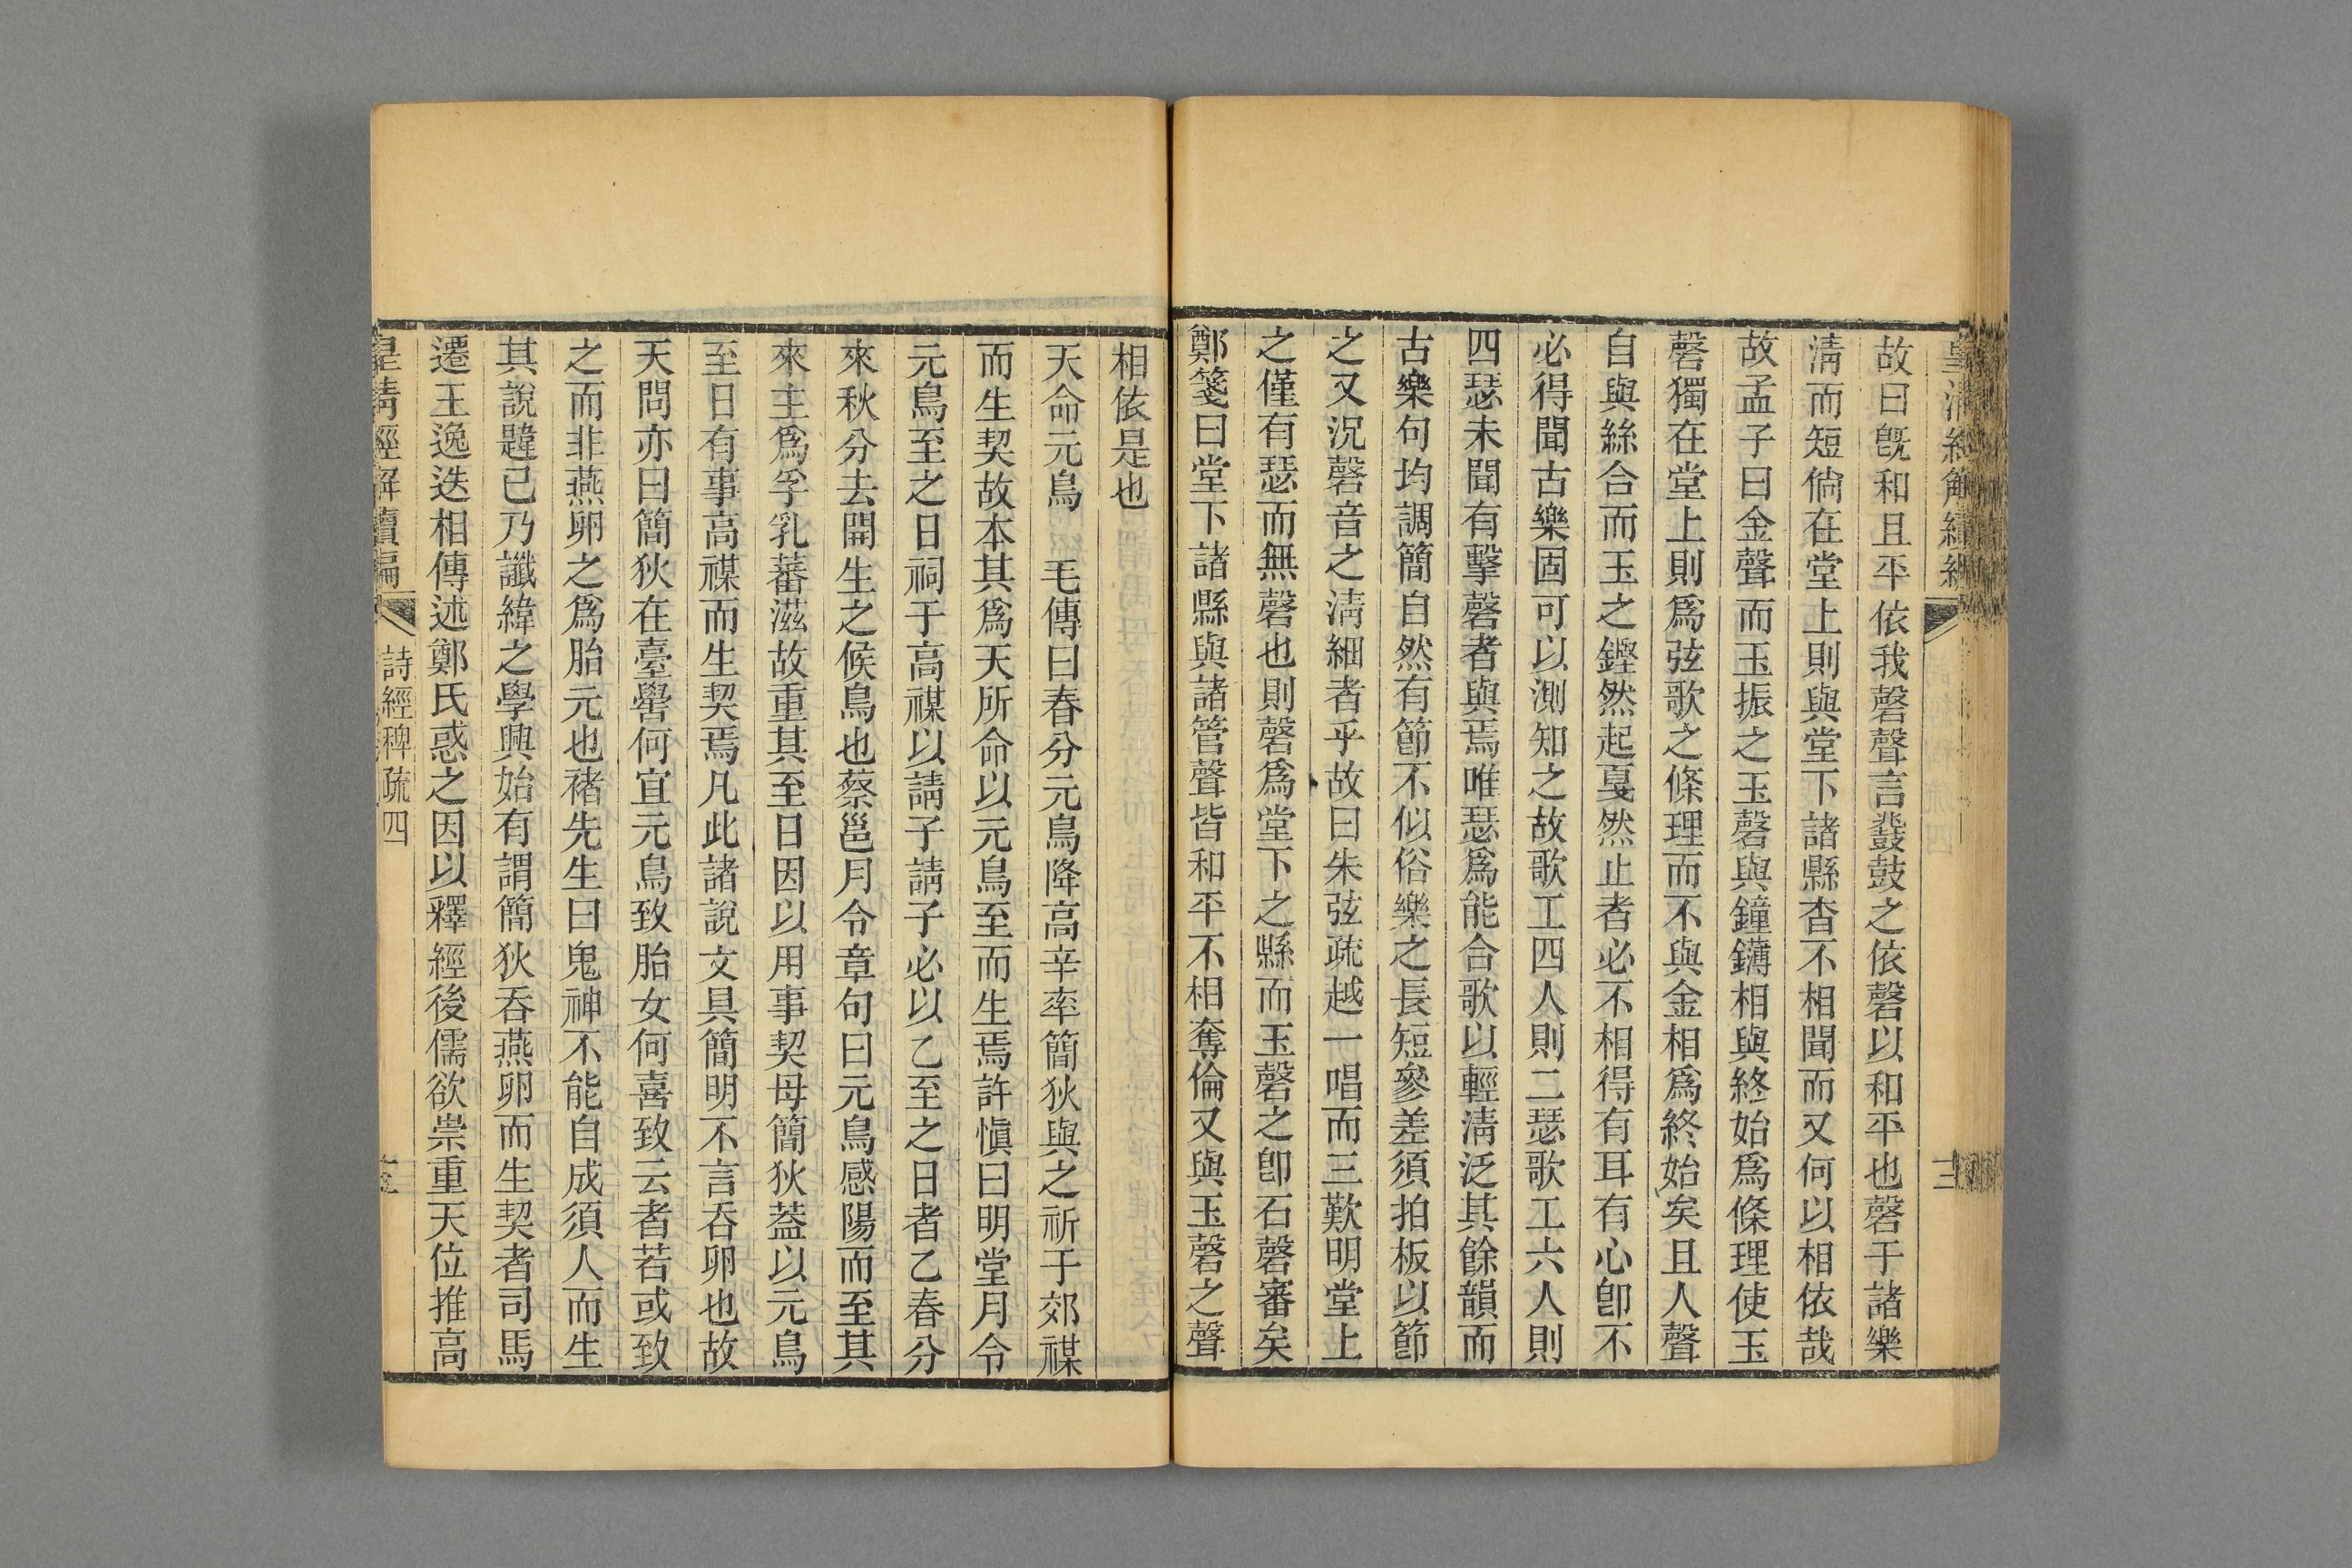 故曰旣和且平依我磬聲言鼗鼓之依磬以和平也磬于諸樂
淸而短倘在堂上則與堂下諸縣杳不相聞而又何以相依哉
故孟子曰金聲而玉振之玉磬與鐘鏄相與終始爲條理使玉
磬獨在堂上則爲弦歌之條理而不與金相爲終始矣且人聲
自與絲合而玉之鏗然起戛然止者必不相得有耳有心卽不
必得聞古樂固可以測知之故歌工四人則二瑟歌工六人則
四瑟未聞有擊磬者與焉唯瑟爲能合歌以輕淸泛其餘韻而
古樂句均調簡自然有節不似俗樂之長短參差須拍板以節
之又況磬音之淸細者乎故曰朱弦疏越一唱而三歎明堂上
之僅有瑟而無磬也則磬爲堂下之縣而玉磬之卽石磬審矣
鄭箋曰堂下諸縣與諸管聲皆和平不相奪倫又與玉磬之聲
相依是也
天命元鳥　毛傳曰春分元鳥降高辛率簡狄與之祈于郊禖
而生契故本其爲天所命以元鳥至而生焉許愼曰明堂月令
元鳥至之日祠于高禖以請子請子必以乙至之日者乙春分
來秋分去開生之候鳥也蔡邕月令章句曰元鳥感陽而至其
來主爲孚乳蕃滋故重其至日因以用事契母簡狄葢以元鳥
至日有事高禖而生契焉凡此諸說文具簡明不言呑卵也故
天問亦曰簡狄在臺嚳何宜元鳥致胎女何喜致云者若或致
之而非燕卵之爲胎元也褚先生曰鬼神不能自成須人而生
其說韙已乃讖緯之學興始有謂簡狄呑燕卵而生契者司馬
遷王逸迭相傳述鄭氏惑之因以釋經後儒欲崇重天位推高
皇淸經解續編
詩經稗疏四